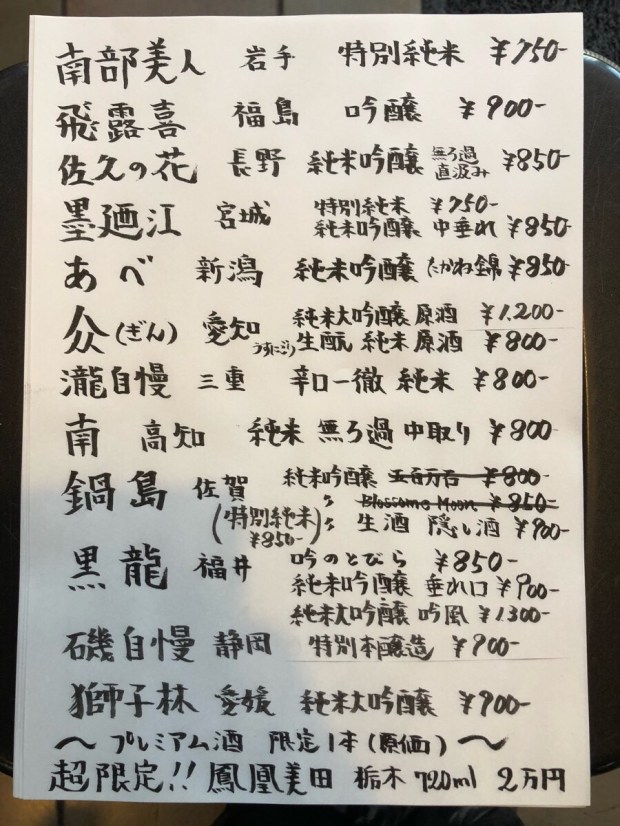 南部美人 岩手 特別純米 ¥750-
飛露喜 福島 吟醸 ¥900-
佐久の花 長野 純米吟醸 無ろ過 直汲み ¥850-
墨廼江 宮城 特別純米 ¥750-
純米吟醸 中垂れ ¥850-
あべ 新潟 純米吟醸 たかね錦 ¥850-
众(ぎん) 愛知 純米大吟醸 原酒 ¥1,200-
うすにごり 生酛 純米 原酒 ¥800-
瀧自慢 三重 辛口一徹 純米 ¥800-
南 高知 純米 無ろ過 中取り ¥800-
鍋島 佐賀 純米吟醸 五百万石 ¥800-
〃 Blossoms Moon ¥850-
(特別純米 ¥850-) 〃 生酒 隠し酒 ¥900-
黒龍 福井 吟のとびら ¥850-
純米吟醸 垂れ口 ¥900-
純米大吟醸 吟風 ¥1.300-
磯自慢 静岡 特別本醸造 ¥900-
獅子林 愛媛 純米大吟醸 ¥900-
〜プレミアム酒 限定1本(原価)〜
超限定!! 鳳凰美田 栃木 720ml 2万円